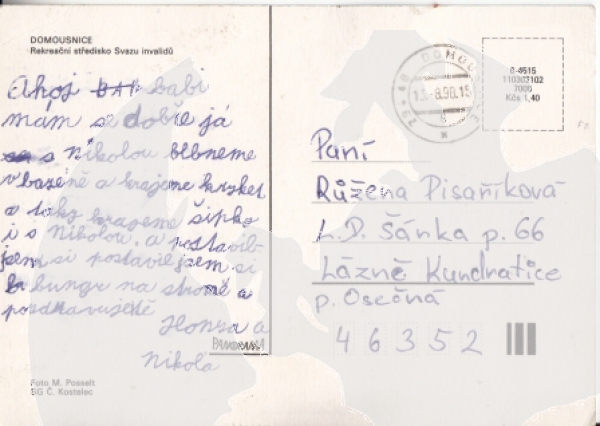 DOMOUSNICE
Rekreační středisko Svazu invalidů
Ahoj babi
mám se dobře já
s Nikolou blbneme
v bazéně a hrajeme kryket
a toky hrajeme šipky
i s Nikolou, a postavil
jsem si postavil jsem si
bungr na stromě a
Honza a
Nikola
PANORAMA
Foto M. Posselt
SG Č. Kostelec
294 48 DOMOUSNICE
13.-8.90.15
0-4515
110303102
7006
Kčs 1,40
Paní
Růžena Pisaříková
L.D. Šánka p. 66
Lázně Kundratice
p. Osečná
46352